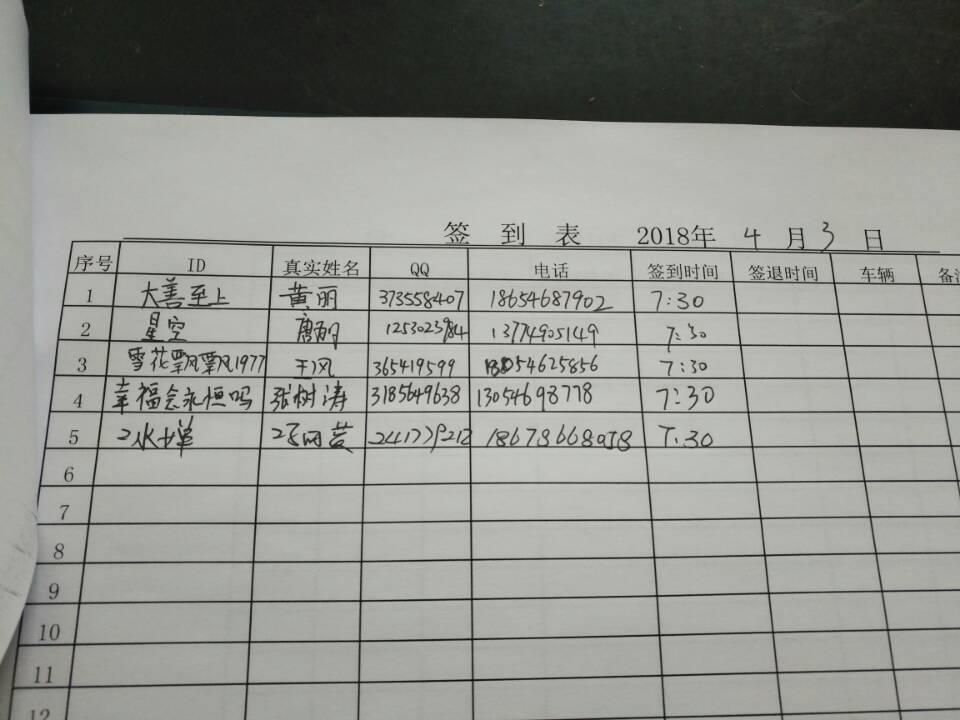 签到表 2018年 4 月 3 日
序号 ID 真实姓名 QQ 电话 签到时间 签退时间 车辆 备注
1 大善至上 黄丽 373558407 18654687902 7:30
2 星空 唐丽 125302984 13774905149 7:30
3 雪花飘飘1977 王风 365419599 054625856 7:30
4 幸福会永恒吗 张树涛 3185649638 13054698778 7:30
5 7:30
6
7
8
9
10
11
12